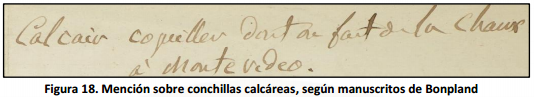 Calcair coquiller dont on fait de la chaux
à Montevideo.
Figura 18. Mención sobre conchillas calcáreas, según manuscritos de Bonpland